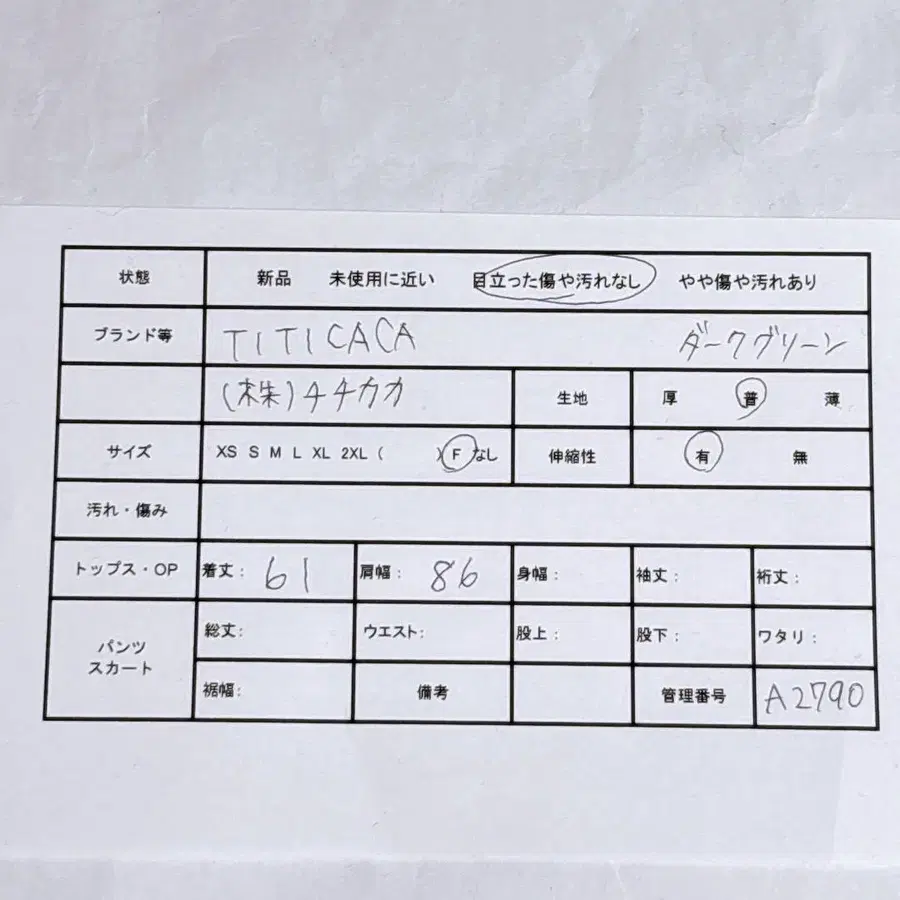 状態 新品 未使用に近い 目立った傷や汚れなし やや傷や汚れあり
ブランド等 TITICACA ダークグリーン
(株)チチカカ 生地 厚 普 薄
サイズ XS S M L XL 2XL ( ) F なし 伸縮性 有 無
汚れ・傷み
トップス・OP 着丈: 61 肩幅: 86 身幅: 袖丈: 裄丈:
パンツ スカート 総丈: ウエスト: 股上: 股下: ワタリ:
裾幅: 備考 管理番号 A2790